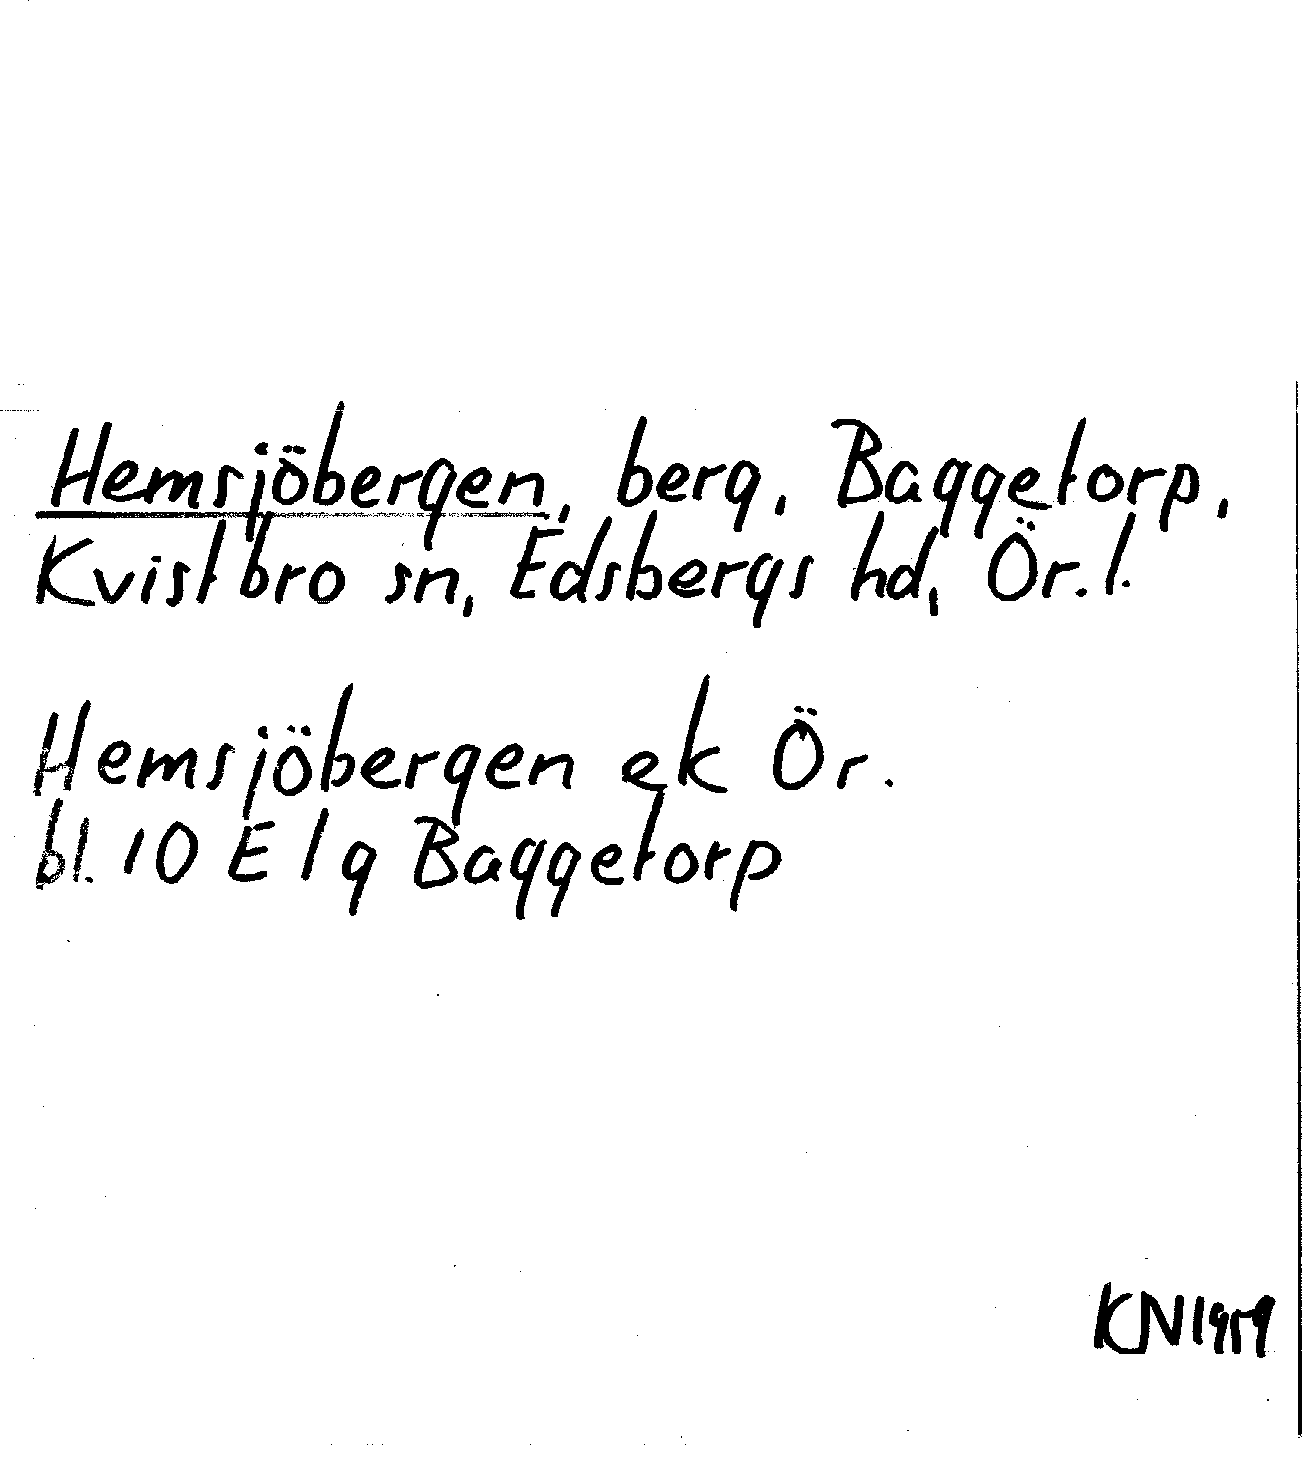 Hemsjöbergen, berg, Baggetorp,
Kvistbro sn, Edsbergs hd, Ör.l.
Hemsjöbergen ek Ör.
bl. 10 E 1 g Baggetorp
KN 1959